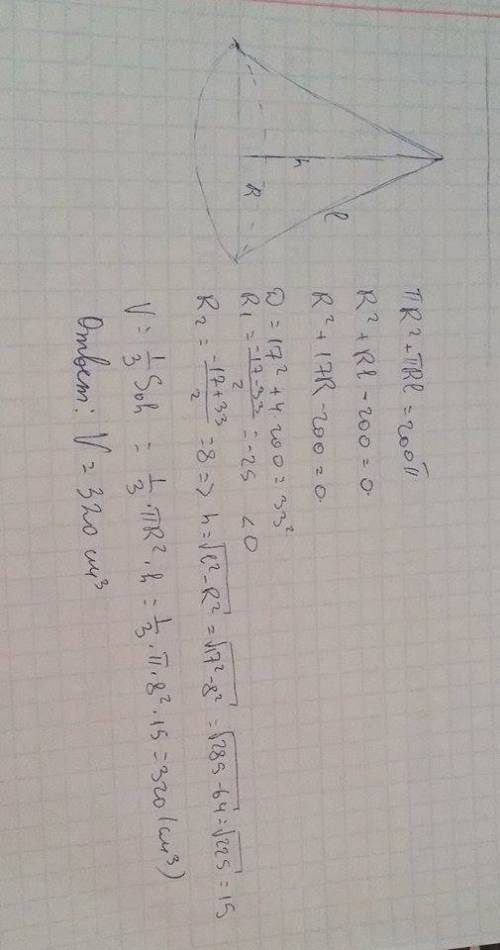 h
R
l
πR² + πRl = 200π
R² + Rl - 200 = 0.
R² + 17R - 200 = 0.
D = 17² + 4·200 = 33²
R₁ = (-17-33)/2 = -25 < 0
R₂ = (-17+33)/2 = 8 => h = √(l² - R²) = √(17² - 8²) = √(289 - 64) = √225 = 15
V = 1/3 Soh = 1/3 · πR² · h = 1/3 · π · 8² · 15 = 320 (см³)
Ответ: V = 320 см³